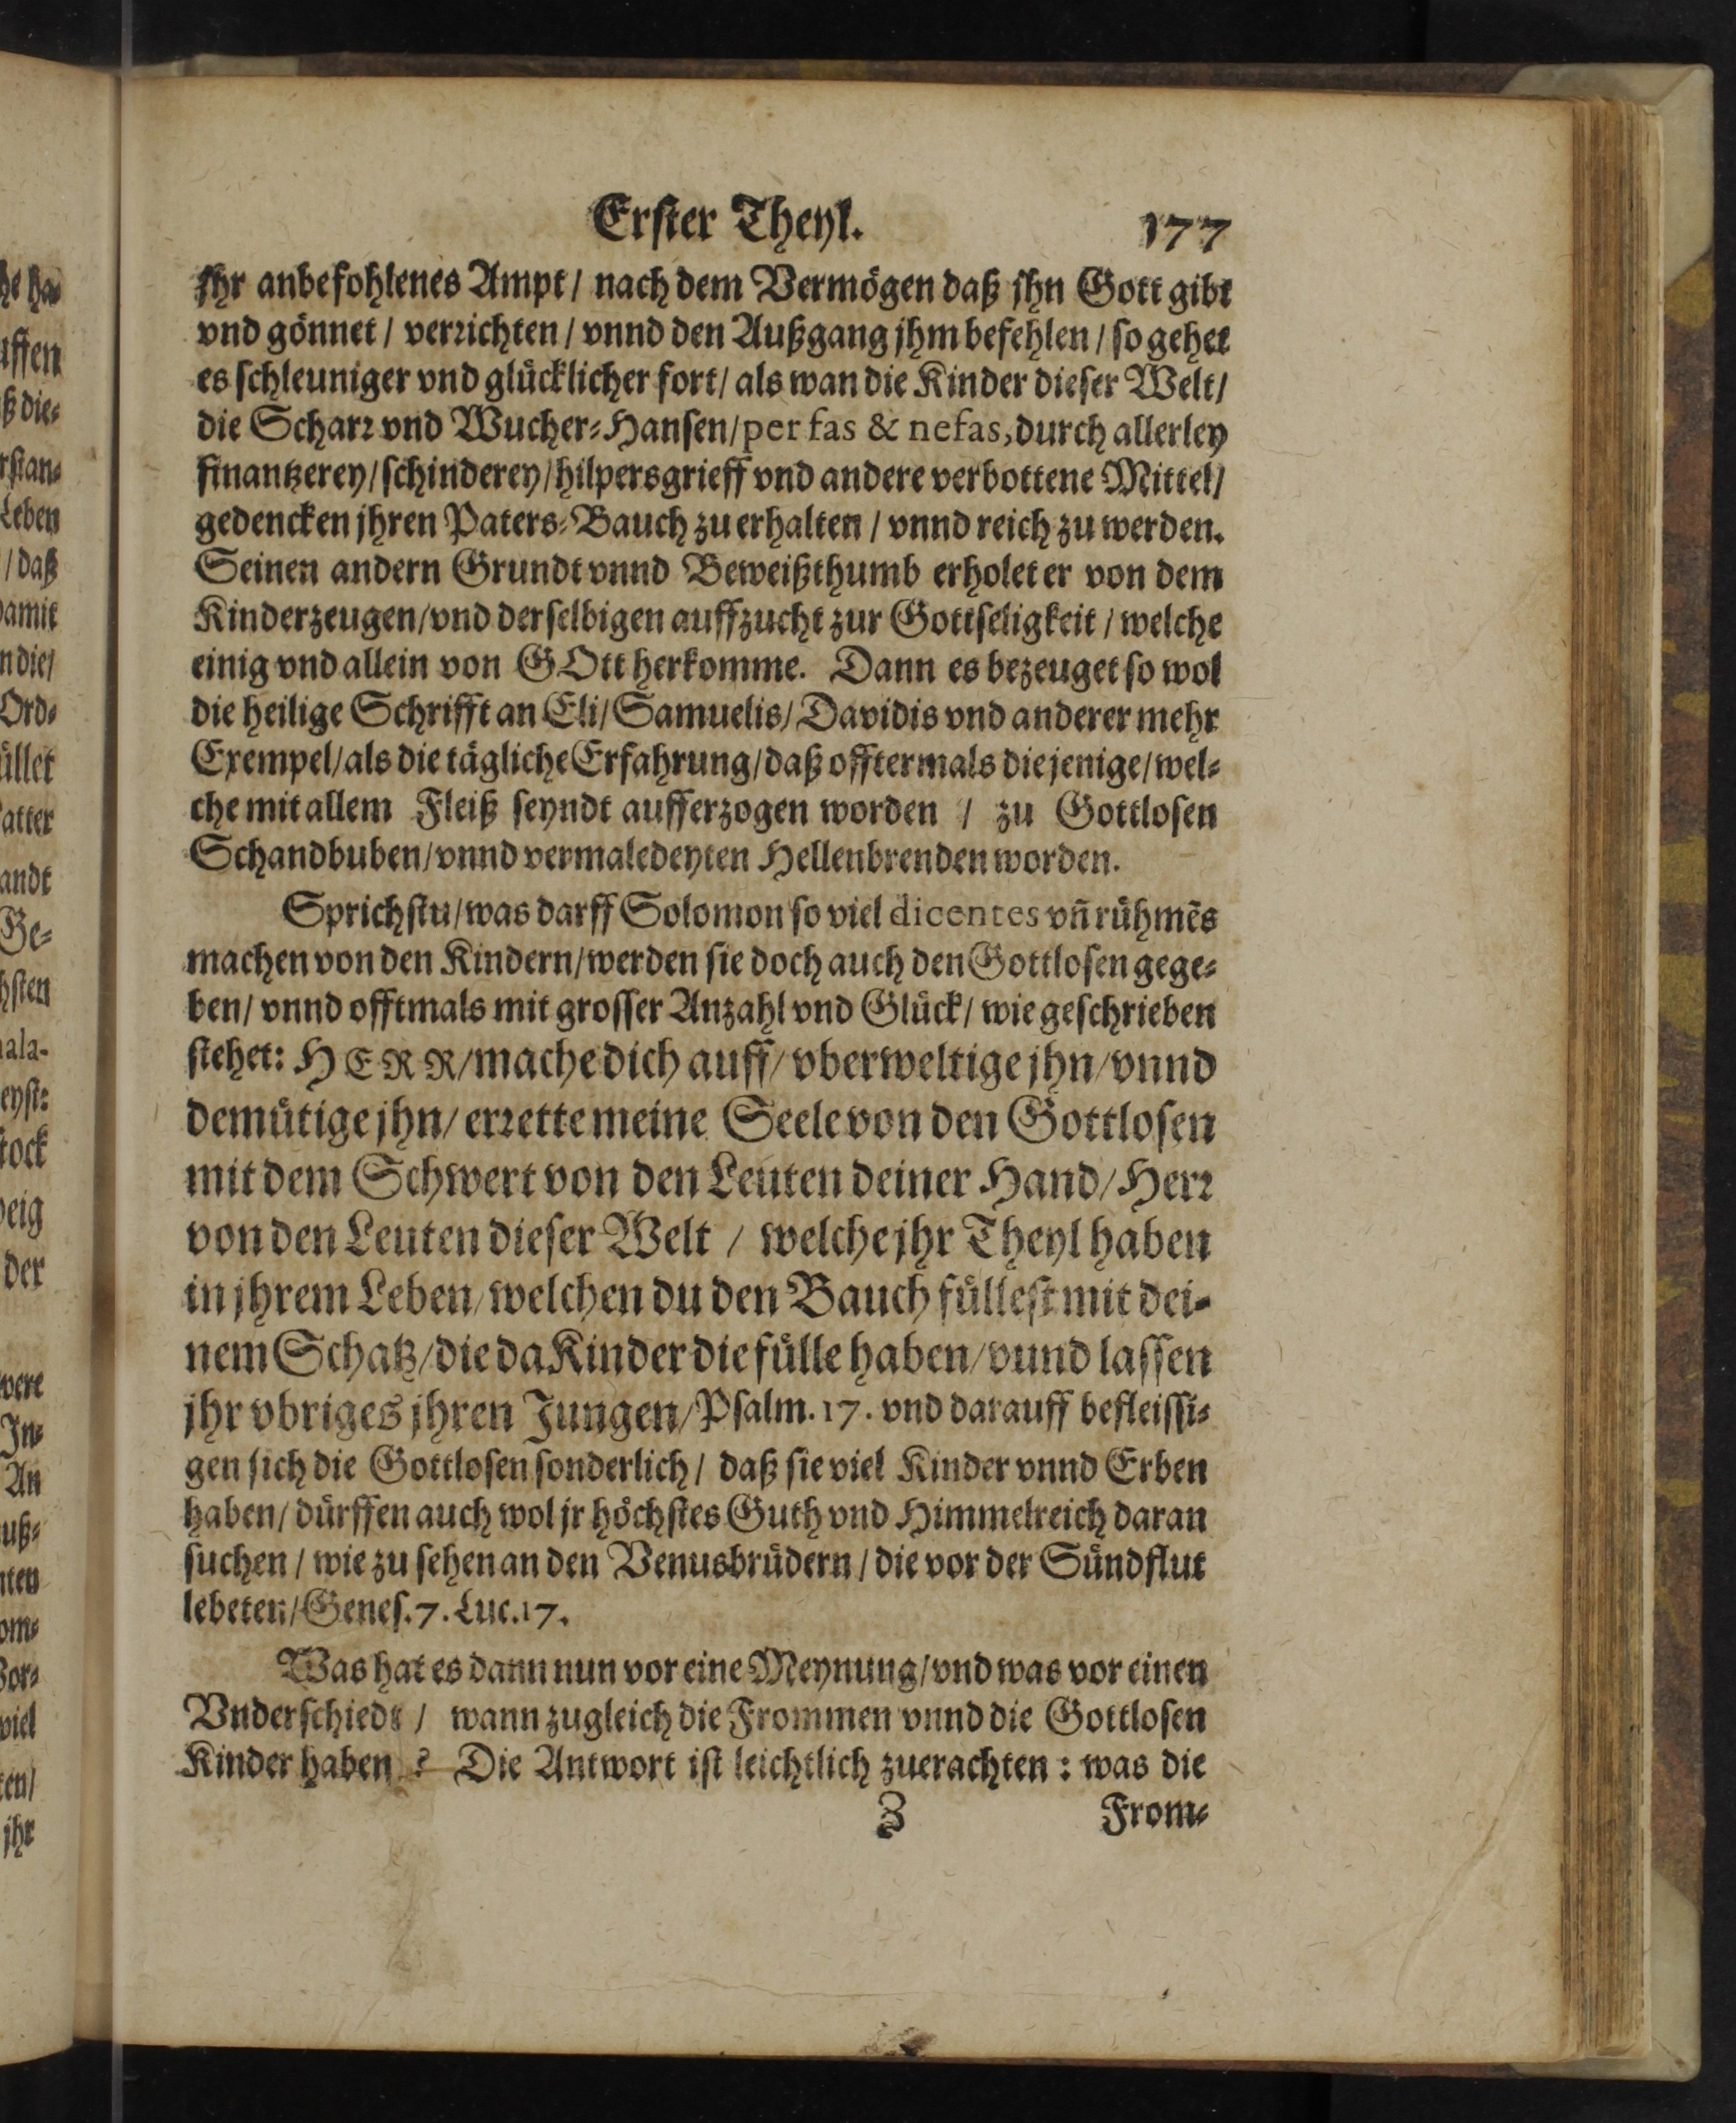 Erster Theyl. 177
jhr anbefohlenes Ampt / nach dem Vermögen daß jhn Gott gibt
vnd gönnet / verrichten / vnnd den Außgang jhm befehlen / so gehet
es schleuniger vnd glücklicher fort / als wan die Kinder dieser Welt /
die Scharr vnd Wucher-Hansen / per fas & nefas, durch allerley
finantzerey / schinderey / hilpersgrieff vnd andere verbottene Mittel /
gedencken jhren Paters-Bauch zu erhalten / vnnd reich zu werden.
Seinen andern Grundt vnnd Beweißthumb erholet er von dem
Kinderzeugen / vnd derselbigen auffzucht zur Gottseligkeit / welche
einig vnd allein von GOtt herkomme. Dann es bezeuget so wol
die heilige Schrifft an Eli / Samuelis / Davidis vnd anderer mehr
Exempel / als die tägliche Erfahrung / daß offtermals diejenige / wel-
che mit allem Fleiß seyndt aufferzogen worden / zu Gottlosen
Schandbuben / vnnd vermaledeyten Hellenbrenden worden.
Sprichstu / was darff Solomon so viel dicentes vñ rühmēs
machen von den Kindern / werden sie doch auch den Gottlosen gege-
ben / vnnd offtmals mit grosser Anzahl vnd Glück / wie geschrieben
stehet: HERR / mache dich auff / vberweltige jhn / vnnd
demütige jhn / errette meine Seele von den Gottlosen
mit dem Schwert von den Leuten deiner Hand / Herr
von den Leuten dieser Welt / welche jhr Theyl haben
in jhrem Leben / welchen du den Bauch füllest mit dei-
nem Schatz / die da Kinder die fülle haben / vund lassen
jhr vbriges jhren Jungen / Psalm. 17. vnd darauff befleissi-
gen sich die Gottlosen sonderlich / daß sie viel Kinder vnnd Erben
haben / dürffen auch wol jr höchstes Guth vnd Himmelreich daran
suchen / wie zu sehen an den Venusbrüdern / die vor der Sündflut
lebeten / Genes. 7. Luc. 17.
Was hat es dann nun vor eine Meynung / vnd was vor einen
Vnderschiedt / wann zugleich die Frommen vnnd die Gottlosen
Kinder haben ? Die Antwort ist leichtlich zuerachten : was die
Z From-